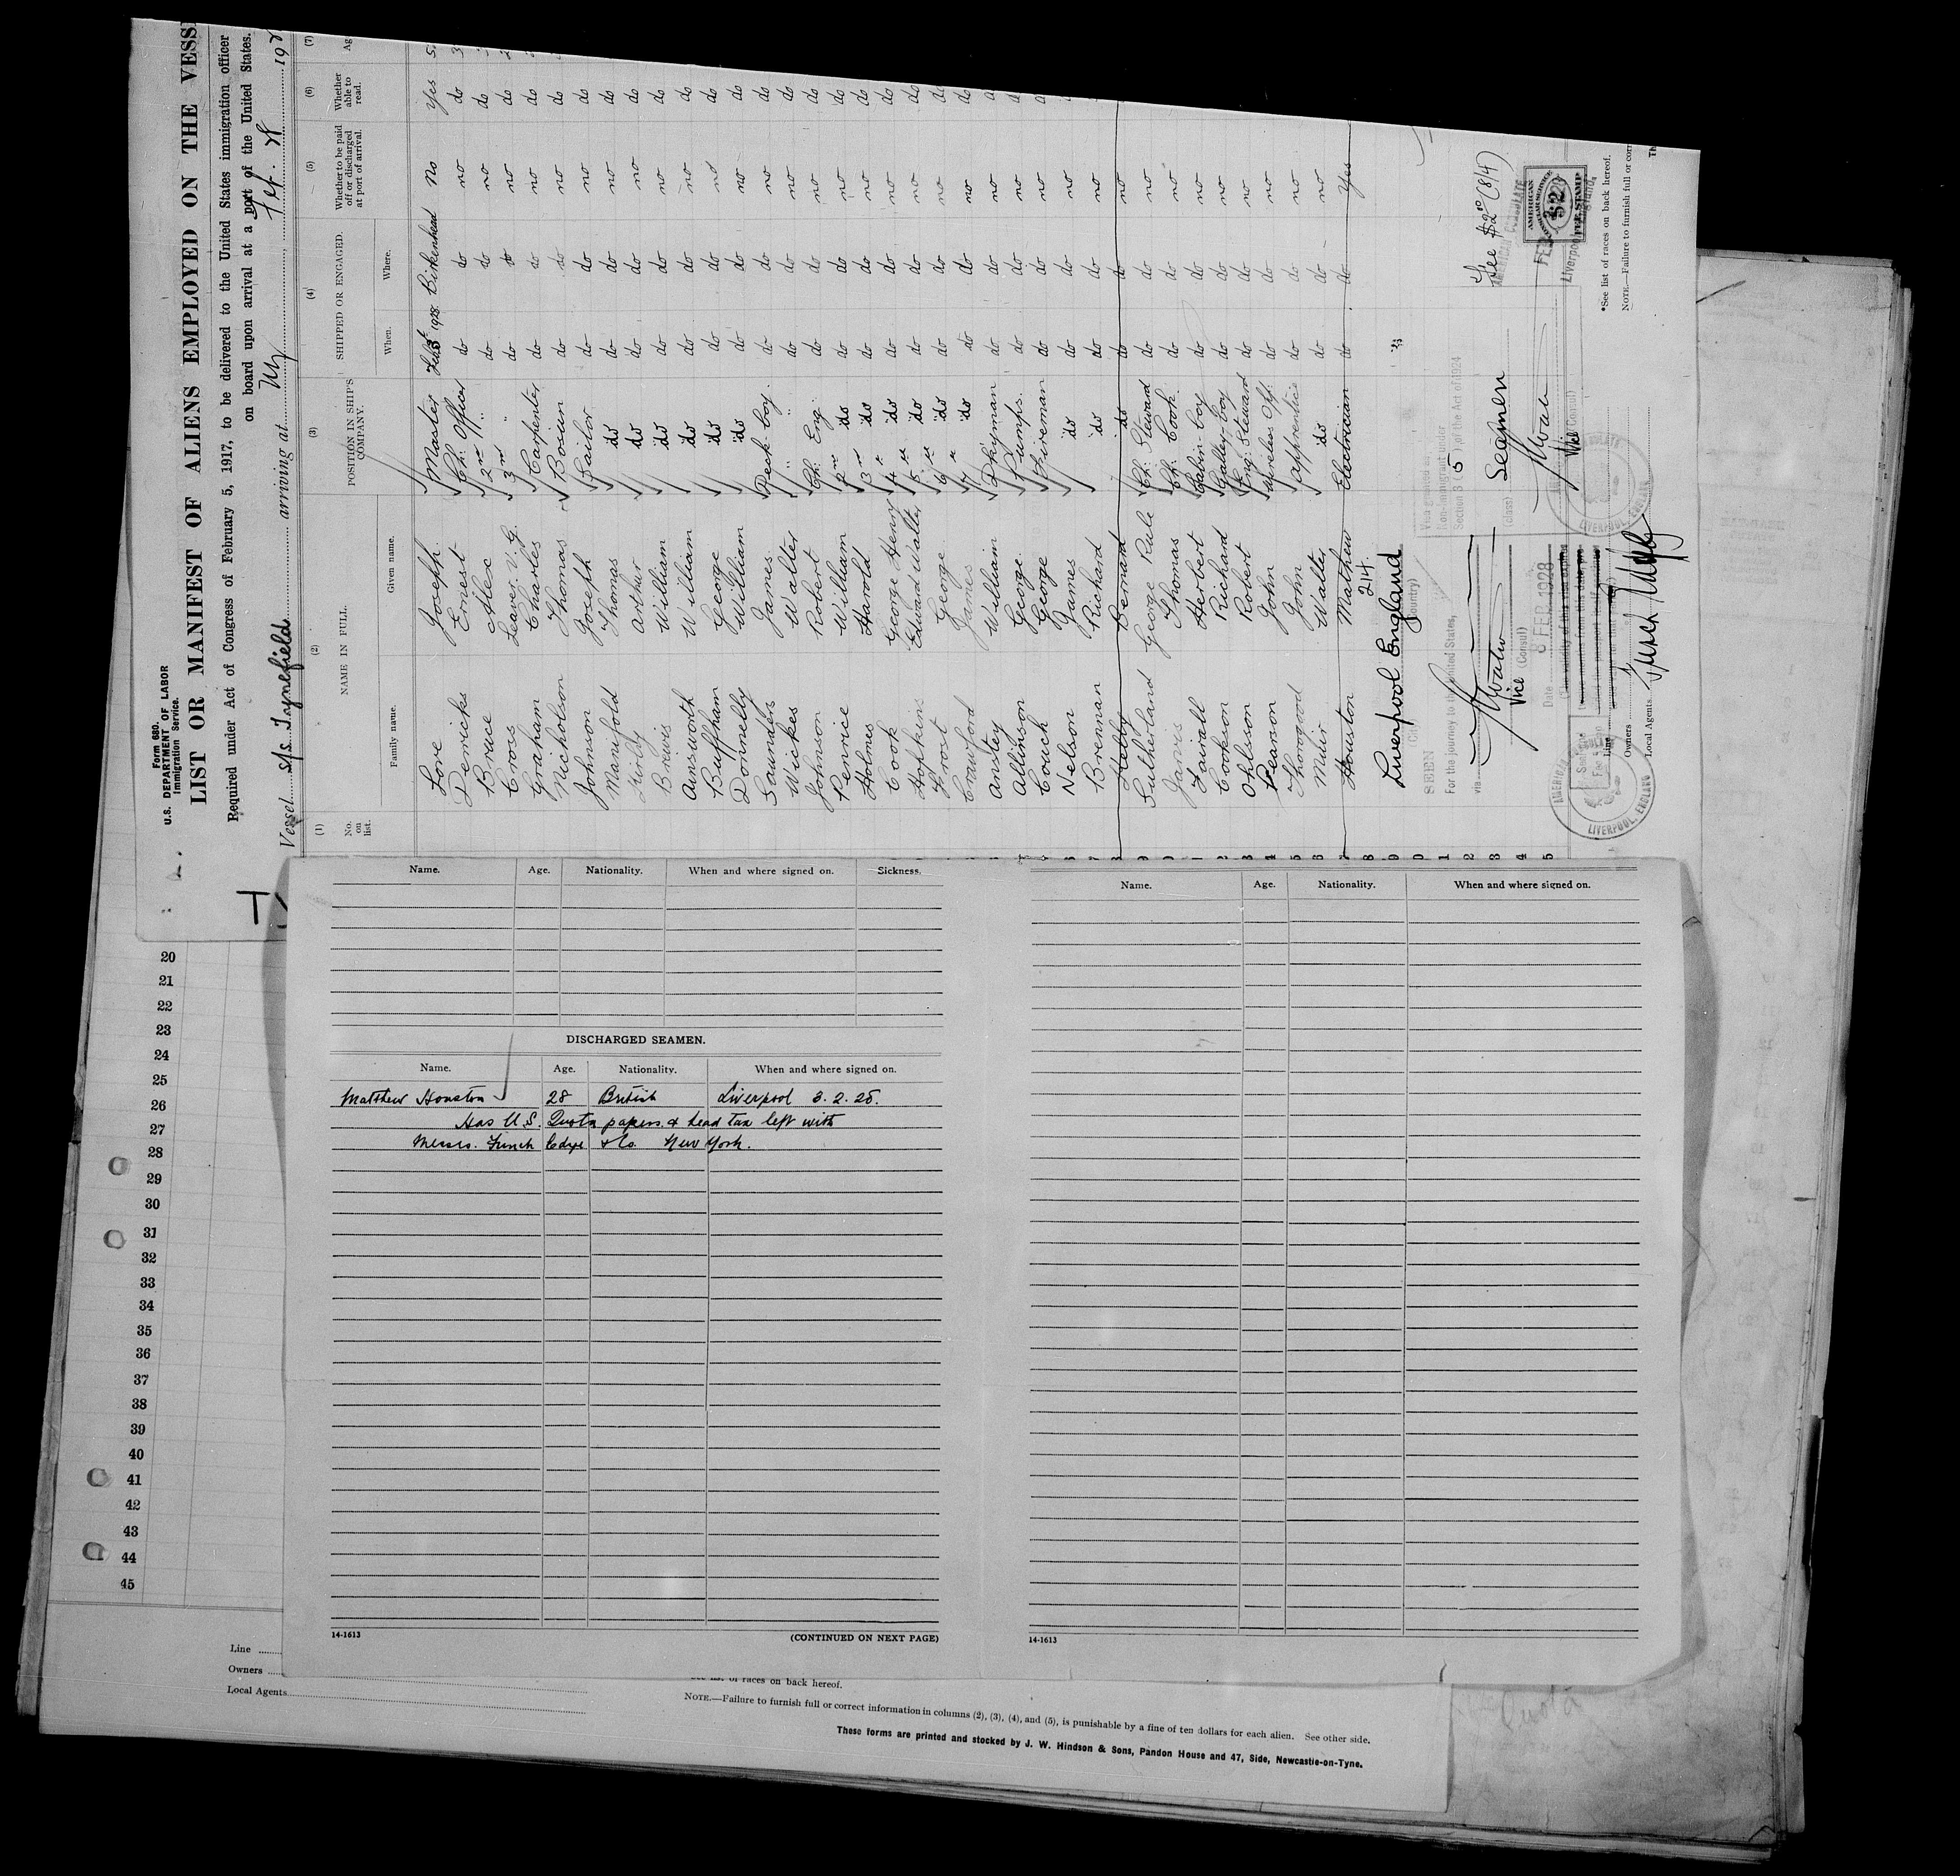 Form 680.
U.S. DEPARTMENT OF LABOR
Immigration Service.
LIST OR MANIFEST OF ALIENS EMPLOYED ON THE VESS
Required under Act of Congress of February 5, 1917, to be delivered to the United States immigration officer
on board upon arrival at a port of the United States.
Vessel s/s Tynefield arriving at 192
(1) (2) (3) (4) (5) (6) (7)
No. on list. NAME IN FULL. POSITION IN SHIP'S COMPANY. SHIPPED OR ENGAGED. Whether to be paid off or discharged at port of arrival. Whether able to read. Ag
Family name. Given name. When. Where.
Love Joseph Master Feb 3 1928 Birkenhead No Yes 5
Derricks Ernest Ch. Officer do do no do 3
Bruce Alex 2nd " do do no do
Cross Leaver. V. G. 3rd " do do no do
Graham Charles Carpenter do do no do
Nicholson Thomas Bosun do do no do
Johnson Joseph Sailor do do no do
Manifold Thomas do do do no do
Kirby Arthur do do do no do
Brewis William do do do no do
Ainsworth William do do do no do
Buffham George do do do no do
Donnelly William do do do no do
Saunders James Deck boy do do no do
Wickes Walter " " do do no do
Johnson Robert Ch. Eng. do do no do
Penrice William 2nd do do do no do
Holmes Harold 3rd do do do no do
Cook George Henry 4th do do do no do
Hopkins Edward Walter 5th do do do no do
Frost George 6th do do do no do
Crawford James 7th do do do no do
Anstey William Dkyman do do no
Allinson George Pumps. do do no
Couch George Fireman do do no
Nelson James do do do no
Brennan Richard do do do no
Bernard do do do no
Sutherland George Rule Ch. Steward do do no
James Thomas Ch. Cook do do no
Fairall Herbert Cabin boy do do no
Cookson Richard Galley boy do do no
Ohlsson Robert Eng. Steward do do no
Pearson John Wireless Opr. do do no
Thorogood John apprentice do do no
Muir Walter do do do no
Houston Mathew Electrician do do Yes
214.
Liverpool England
(Country)
SEEN
For the journey to the United States,
via
Vice (Consul)
Date 8 FEB 1928
Visa granted as
Non-immigrant under
Section 3 (5) of the Act of 1924
Seamen
(class)
Fee $2.00 (8/4)
AMERICAN CONSULATE
Liverpool, England.
AMERICAN
$2
FEE STAMP
LIVERPOOL, ENGLAND
Line
Owners
Local Agents
*See list of races on back hereof.
NOTE.—Failure to furnish full or corr
Th
Name. Age. Nationality. When and where signed on. Sickness.
DISCHARGED SEAMEN.
Name. Age. Nationality. When and where signed on.
Matthew Houston 28 British Liverpool 3.2.28.
Has U.S. Quota papers & head tax left with
Messrs. Funch Edye & Co. New York.
14-1613
(CONTINUED ON NEXT PAGE)
Name. Age. Nationality. When and where signed on.
14-1613
20
21
22
23
24
25
26
27
28
29
30
31
32
33
34
35
36
37
38
39
40
41
42
43
44
45
Line
Owners
Local Agents
races on back hereof.
NOTE.—Failure to furnish full or correct information in columns (2), (3), (4), and (5), is punishable by a fine of ten dollars for each alien. See other side.
These forms are printed and stocked by J. W. Hindson & Sons, Pandon House and 47, Side, Newcastle-on-Tyne.
Quota